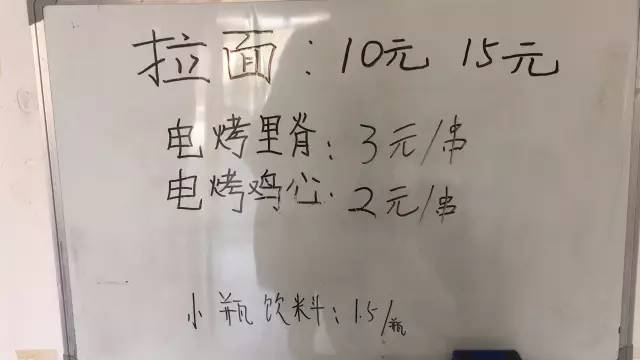 拉面：10元 15元
电烤里脊：3元/串
电烤鸡心：2元/串
小瓶饮料：1.5/瓶